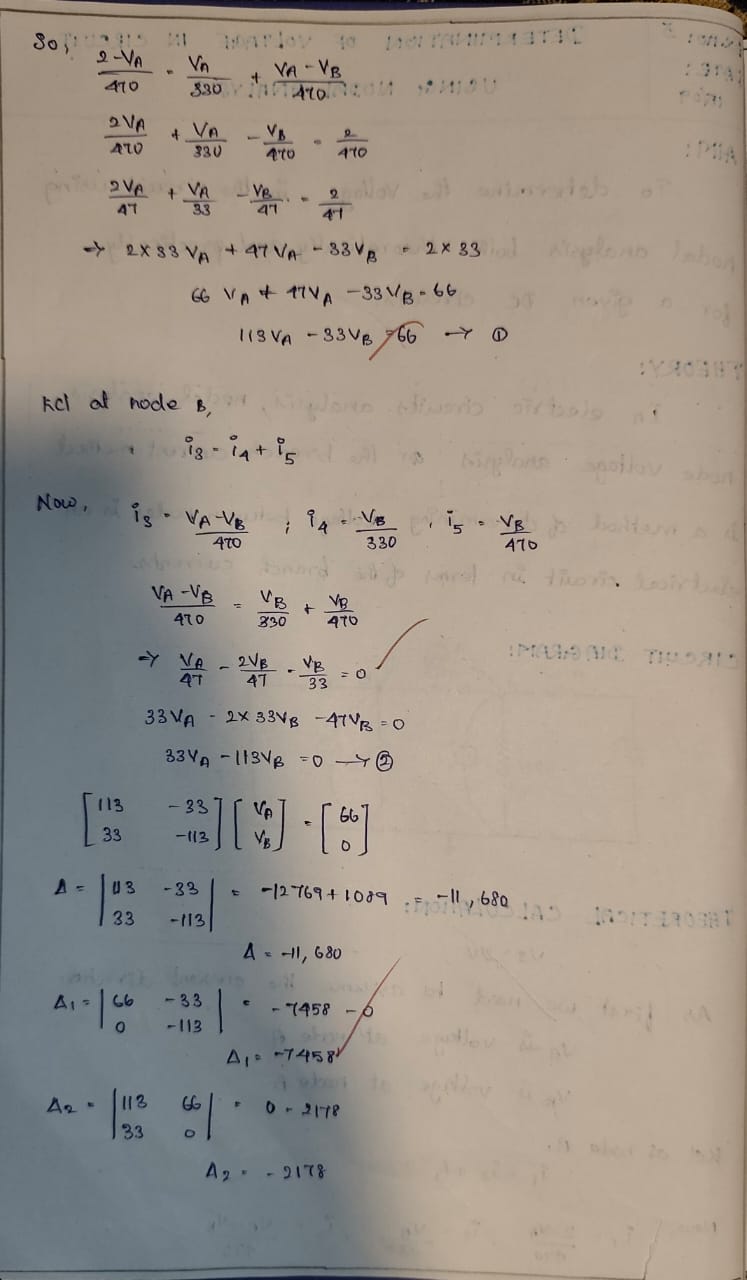 So,
(2-VA)/470 = VA/330 + (VA-VB)/470
2VA/470 + VA/330 - VB/470 = 2/470
2VA/47 + VA/33 - VB/47 = 2/47
→ 2×33 VA + 47 VA - 33 VB = 2×33
66 VA + 47VA - 33VB = 66
113 VA - 33VB = 66 → ①
KCL at node B,
i3 = i4 + i5
Now, i3 = (VA-VB)/470 ; i4 = VB/330 , i5 = VB/470
(VA-VB)/470 = VB/330 + VB/470
→ VA/47 - 2VB/47 - VB/33 = 0
33VA - 2×33VB - 47VB = 0
33VA - 113VB = 0 → ②
[113 -33; 33 -113] [VA; VB] = [66; 0]
Δ = |113 -33; 33 -113| = -12769 + 1089 = -11,680
Δ = -11,680
Δ1 = |66 -33; 0 -113| = -7458 - 0
Δ1 = -7458
Δ2 = |113 66; 33 0| = 0 - 2178
Δ2 = -2178